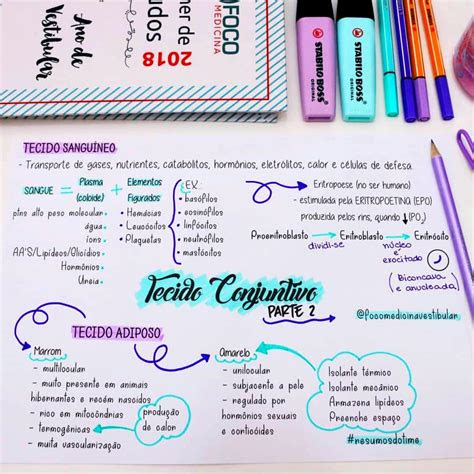 FOCO
MEDICINA
ner de
udos
2018
Ano de
Vestibular
STABILO
BOSS
ORIGINAL
STABILO
BOSS
ORIGINAL
TECIDO SANGUÍNEO
- Transporte de gases, nutrientes, catabólitos, hormônios, eletrólitos, calor e células de defesa
SANGUE = Plasma (coloide) + Elementos Figurados
ptns alto peso molecular
água
íons
AA'S/Lipídeos/Glicídios
Hormônios
Ureia
• Hemácias
• Leucócitos
• Plaquetas
EX
• basófilos
• eosinófilos
• linfócitos
• neutrófilos
• mastócitos
Eritropoese (no ser humano)
- estimulada pela ERITROPOETINA (EPO)
produzida pelos rins, quando ↓(PO₂)
Proeritroblasto → Eritroblasto → Eritrócito
dividi-se
núcleo
é
exocitado
(Bicôncava
e anucleada)
Tecido Conjuntivo
PARTE 2
@focomedicinavestibular
TECIDO ADIPOSO
Marrom
- multilocular
- muito presente em animais
hibernantes e recém nascidos
- rico em mitocôndrias
- termogênicas
- muita vascularização
produção
de calor
Amarelo
- unilocular
- subjacente a pele
- regulado por
hormônios sexuais
e corticóides
Isolante térmico
Isolante mecânico
Armazena lipídeos
Preenche espaço
#resumosdotime